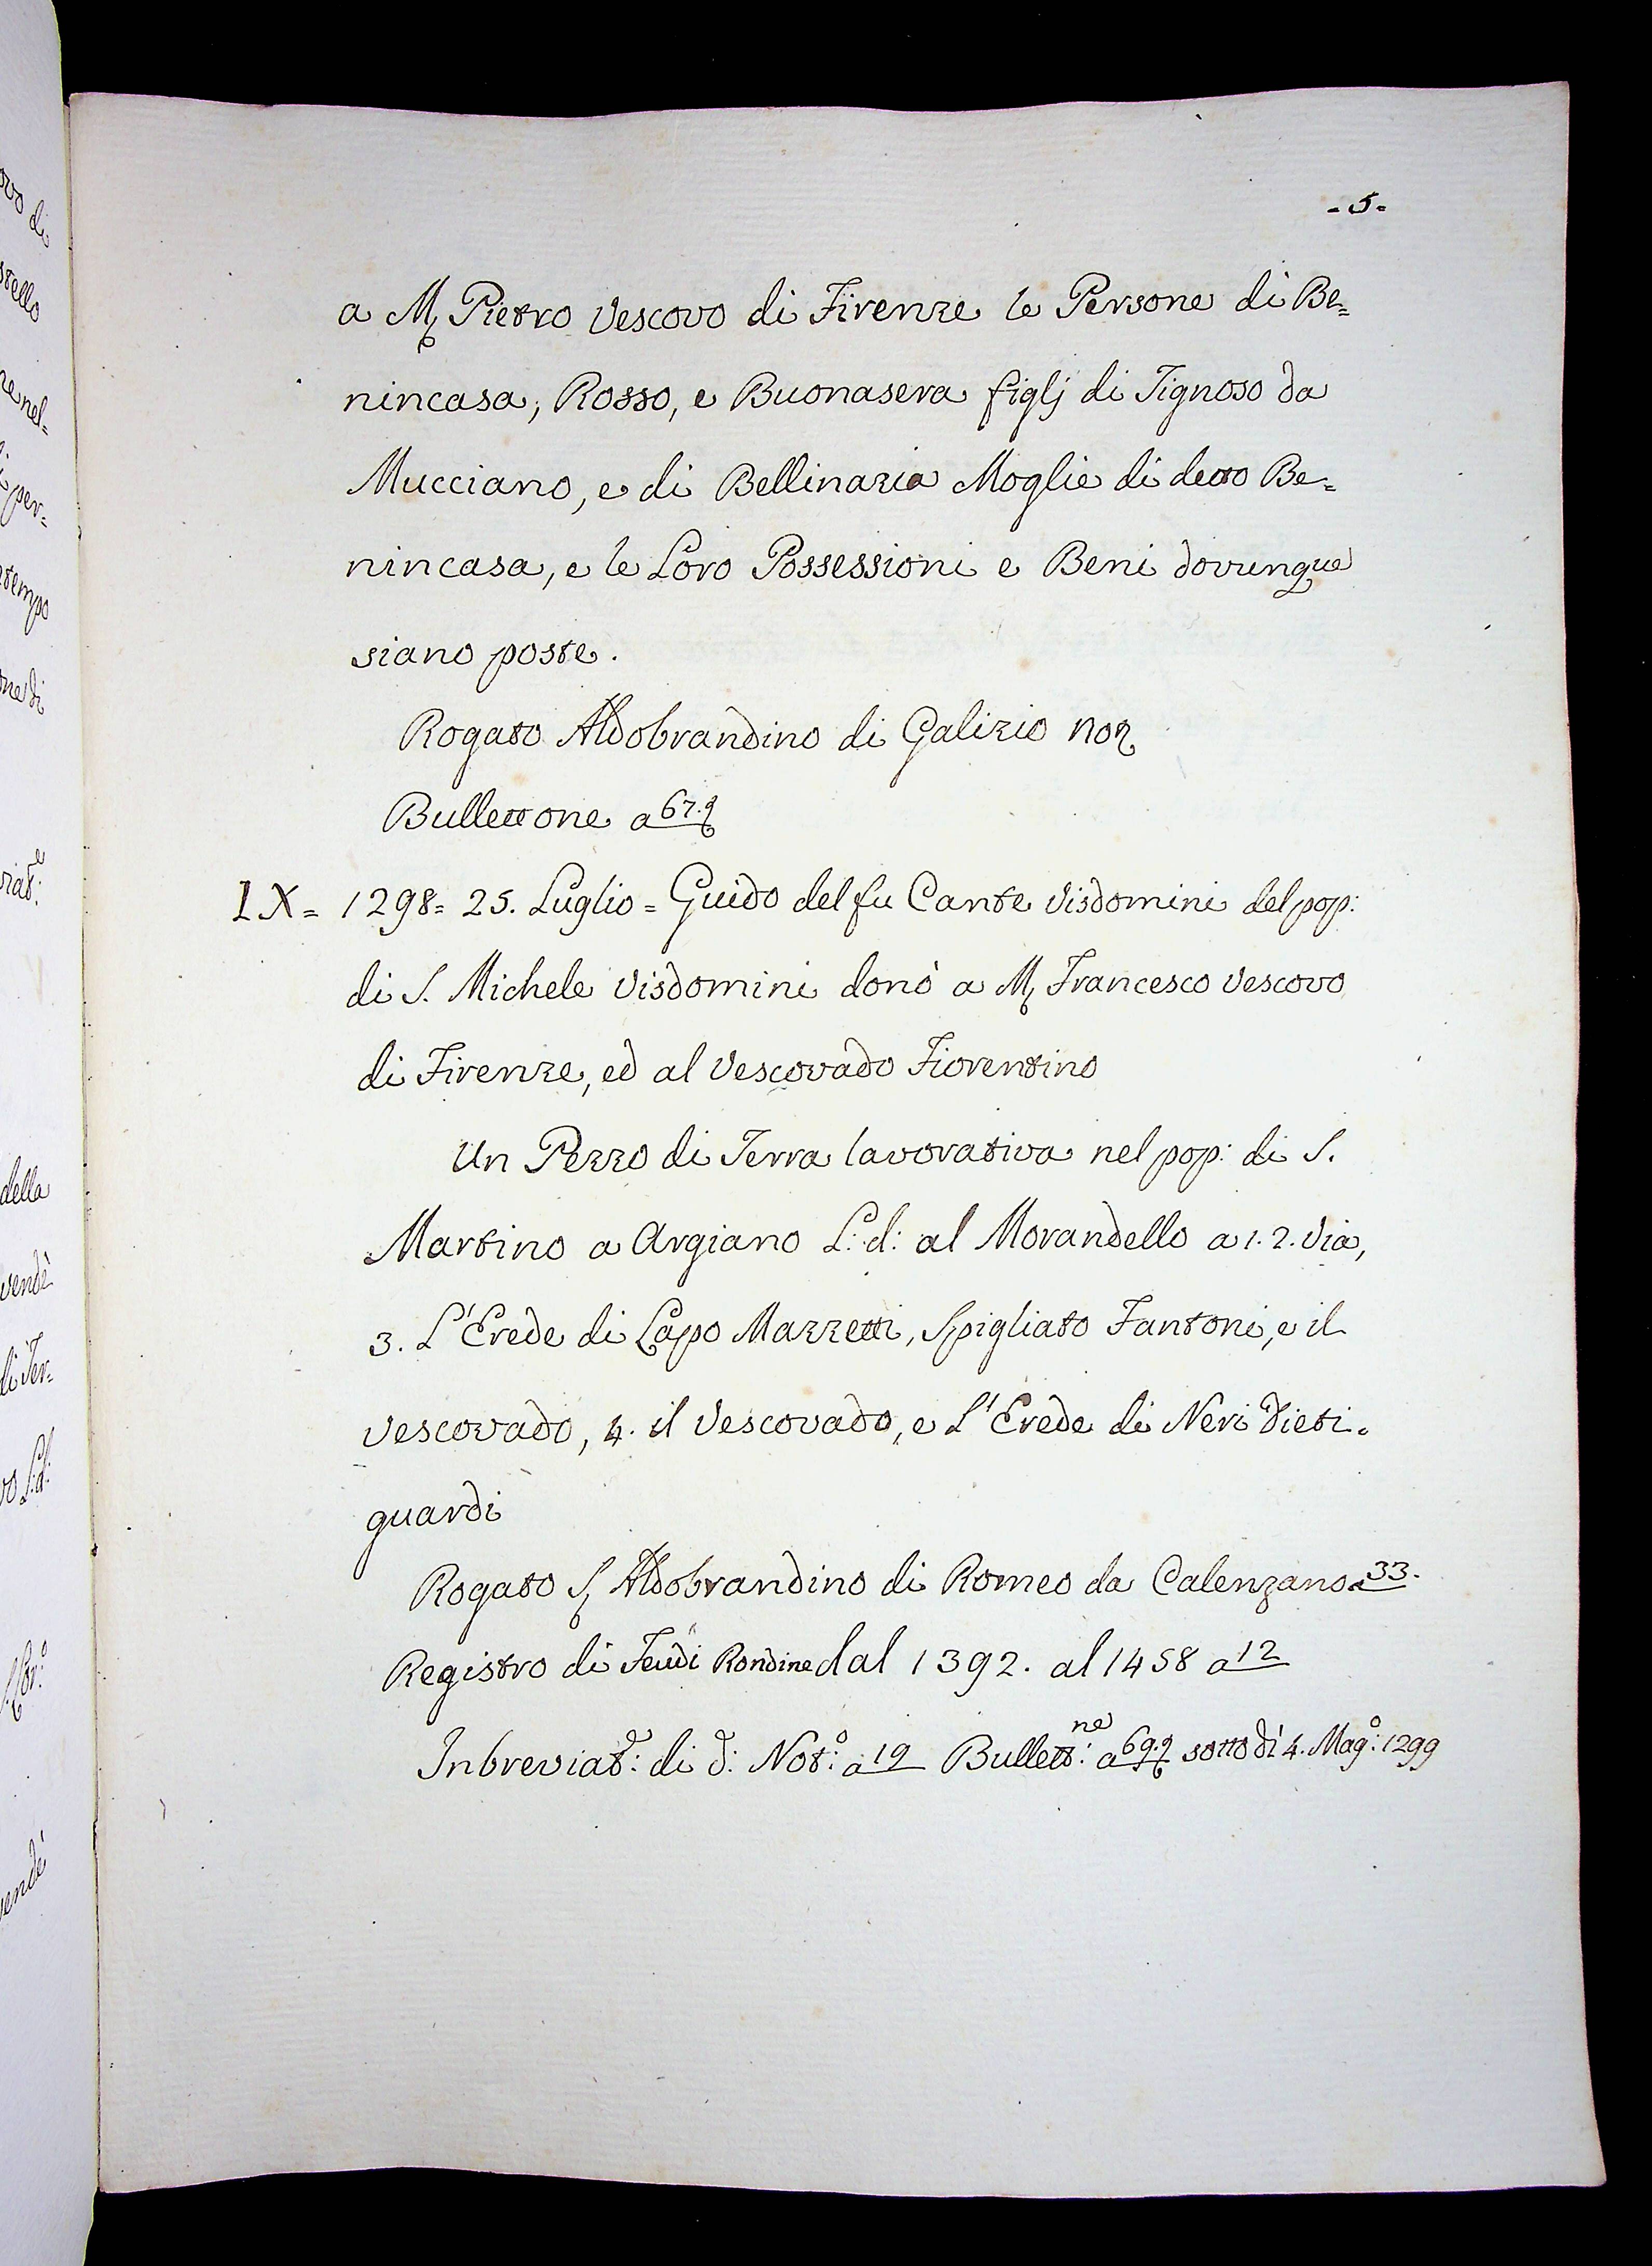 - 5 -
a M. Pietro Vescovo di Firenze le Persone di Be=
nincasa, Rosso, e Buonasera figlj di Tignoso da
Mucciano, e di Bellinazia Moglie di detto Be=
nincasa, e le Loro Possessioni e Beni dovunque
siano poste.
Rogato Aldobrandino di Galizio Not.
Bullettone a 67.
IX = 1298 = 25. Luglio = Guido del fu Cante Visdomini del pop:
di S. Michele Visdomini donò a M. Francesco Vescovo
di Firenze, ed al Vescovado Fiorentino
Un Pezzo di Terra lavorativa nel pop: di S.
Martino a Argiano L: d: al Morandello a 1. 2. Via,
3. L'Erede di Lapo Mazzetti, Spigliato Fantoni, e il
Vescovado, 4. il Vescovado, e L'Erede di Neri Dieti=
guardi
Rogato S. Aldobrandino di Romeo da Calenzano a 33.
Registro di Feudi Rondine dal 1392. al 1458 a 12
Inbreviat: di d: Not:o a 19 Bullett:ne a 69. sotto dì 4. Mag:o 1299